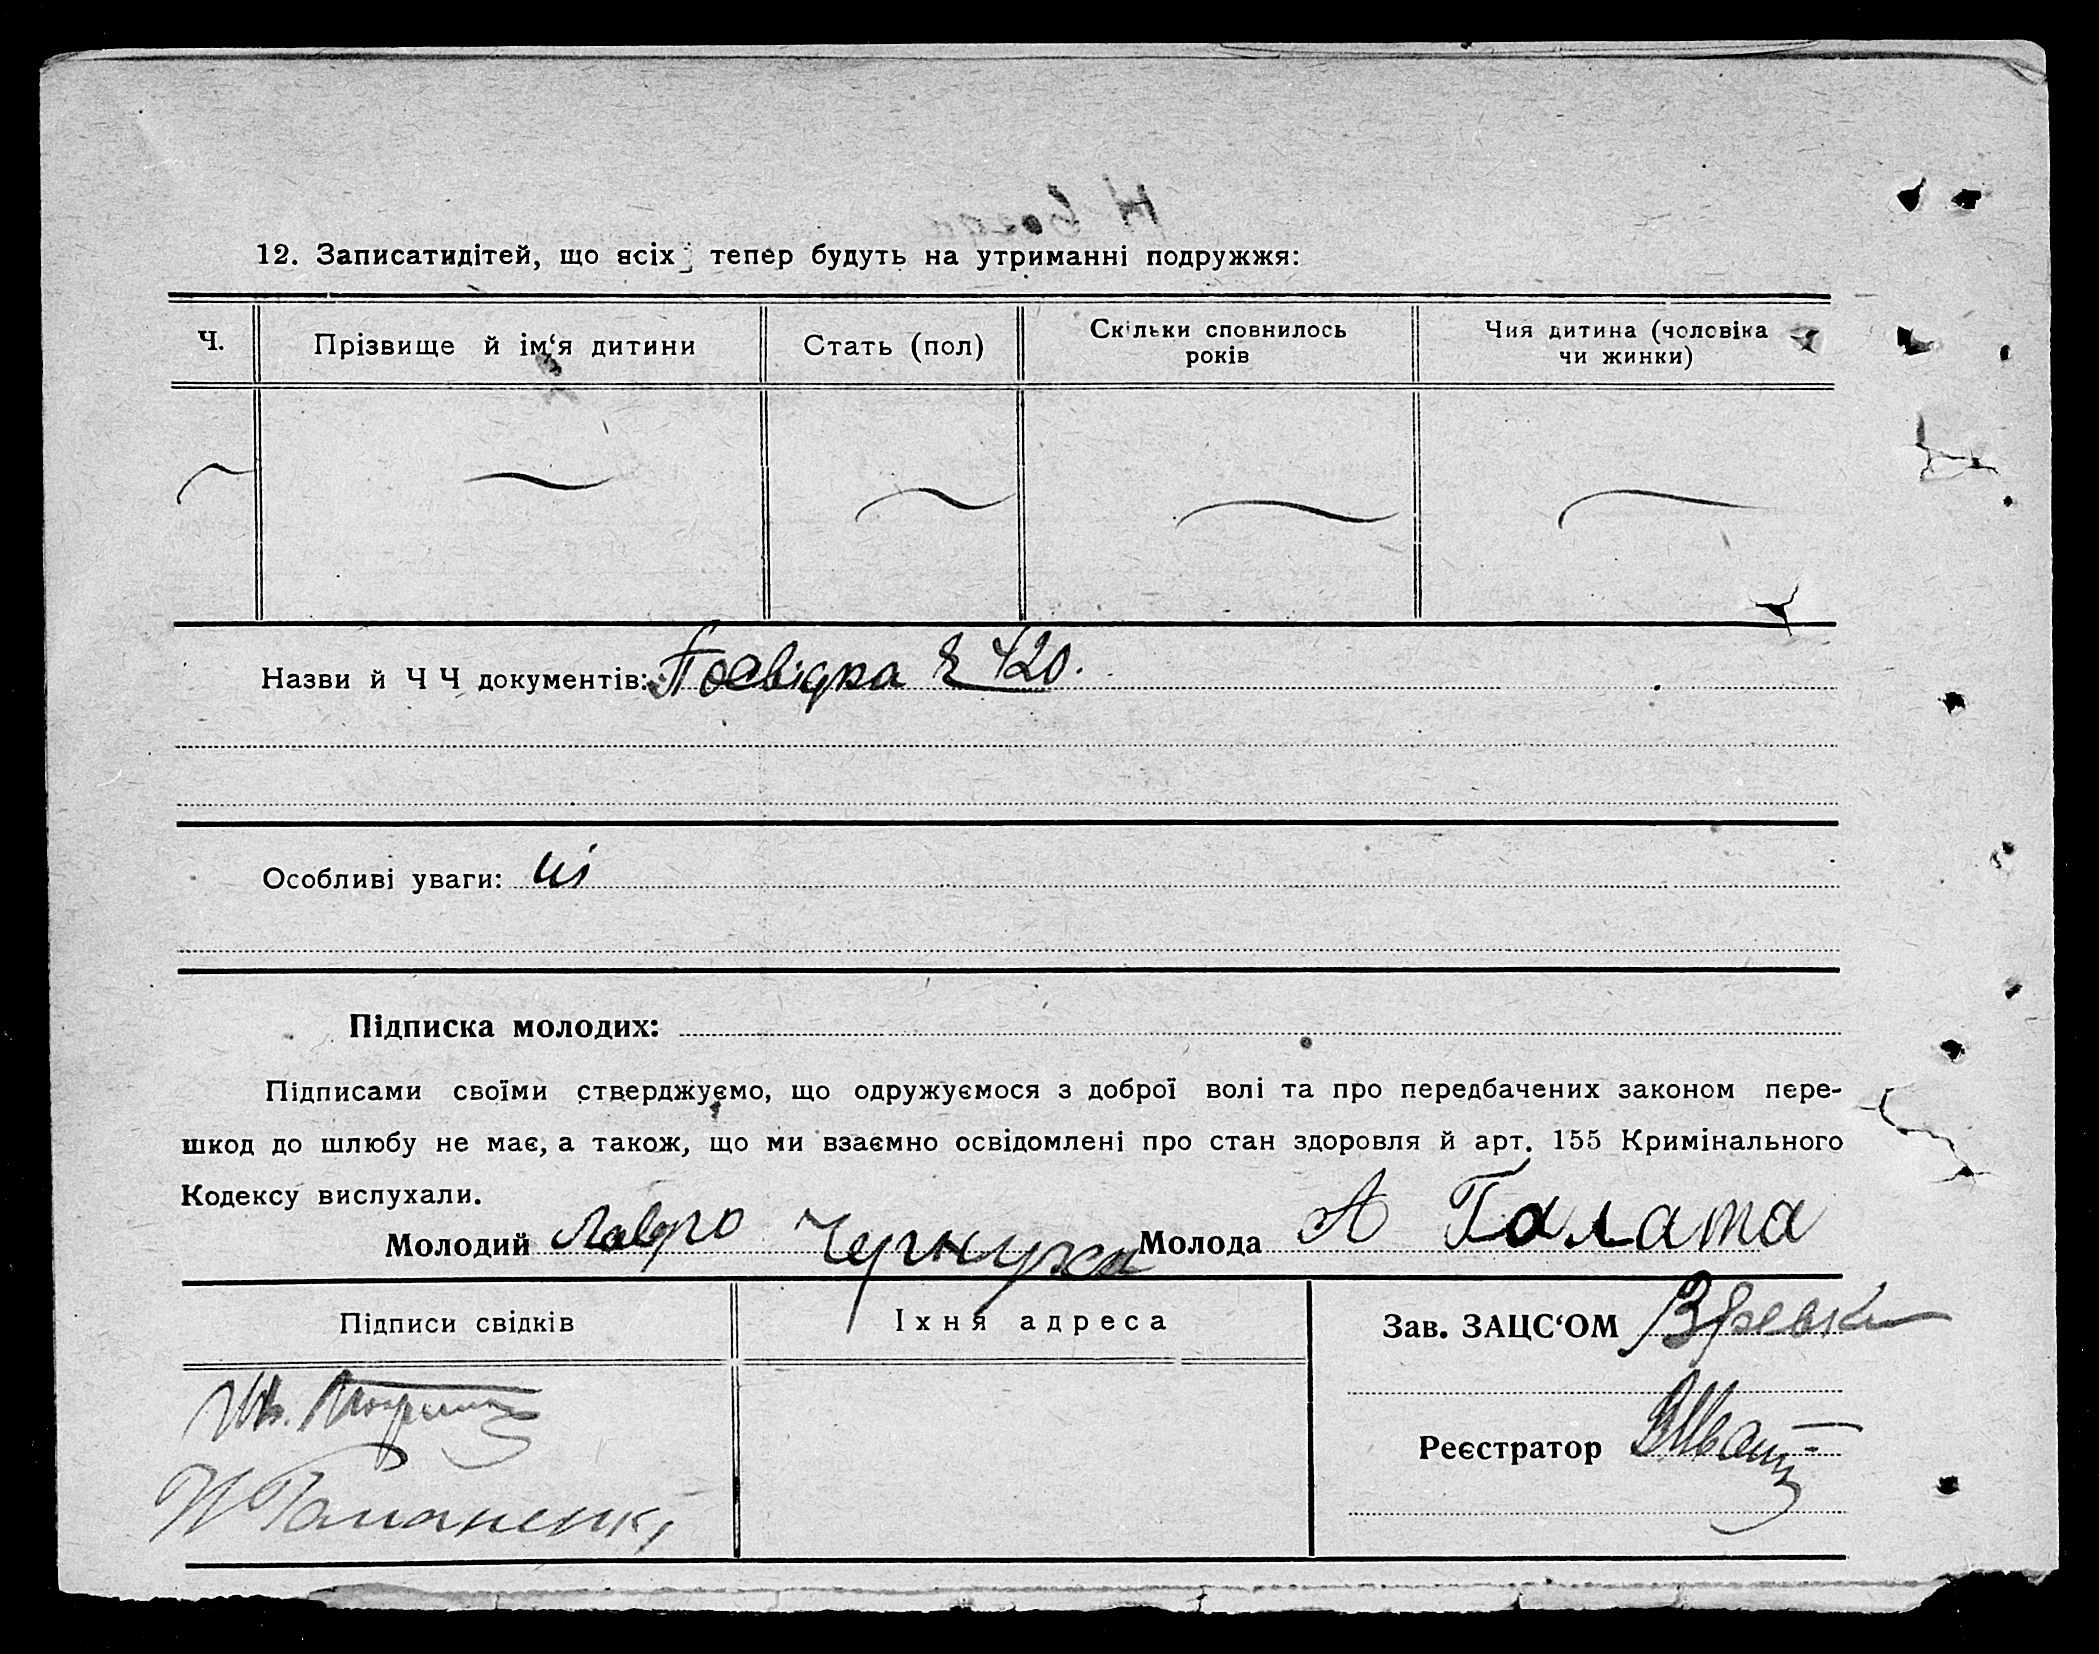 12. Записатидітей, що всіх тепер будуть на утриманні подружжя:
Ч.
Прізвище й ім‘я дитини
Стать (пол)
Скільки сповнилось
років
Чия дитина (чоловіка
чи жинки)
Назви й Ч Ч документів: Посвідка 420.
Особливі уваги: ні
Підписка молодих:
Підписами своїми стверджуємо, що одружуємося з доброї волі та про передбачених законом пере-
шкод до шлюбу не має, а також, що ми взаємно освідомлені про стан здоровля й арт. 155 Кримінального
Кодексу вислухали.
Молодий Лавро Чернуха Молода А Галата
Підписи свідків
Іхня адреса
Зав. ЗАЦС‘ОМ
Реєстратор